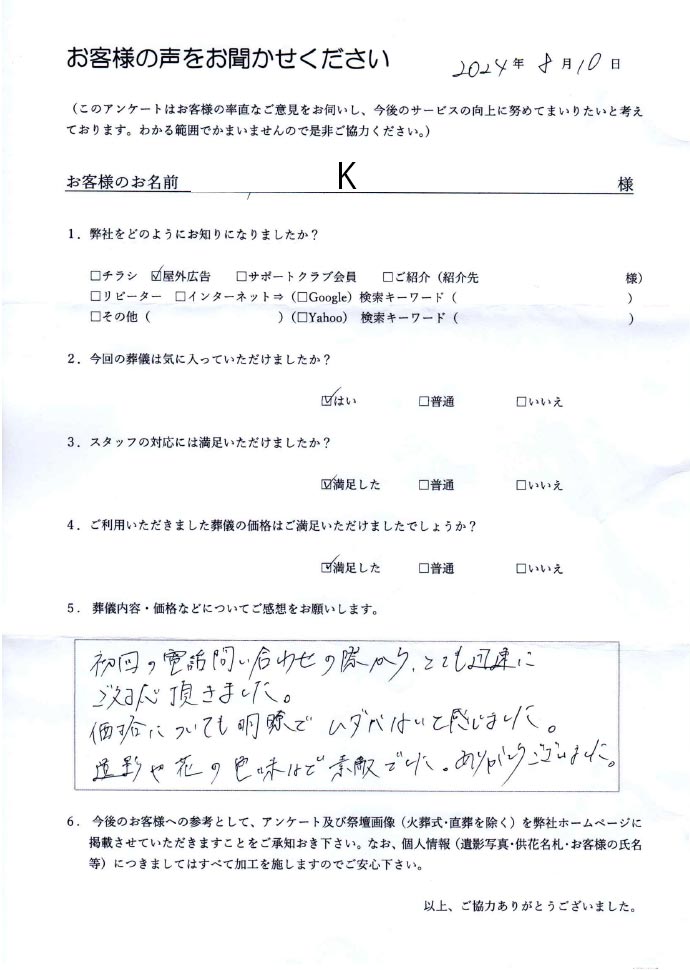 お客様の声をお聞かせください
2024年 8月10日
（このアンケートはお客様の率直なご意見をお伺いし、今後のサービスの向上に努めてまいりたいと考え
ております。わかる範囲でかまいませんので是非ご協力ください。）
お客様のお名前 K 様
１．弊社をどのようにお知りになりましたか？
□チラシ ☑屋外広告 □サポートクラブ会員 □ご紹介（紹介先 様）
□リピーター □インターネット⇒（□Google）検索キーワード（ ）
□その他（ ）（□Yahoo） 検索キーワード（ ）
２．今回の葬儀は気に入っていただけましたか？
☑はい □普通 □いいえ
３．スタッフの対応には満足いただけましたか？
☑満足した □普通 □いいえ
４．ご利用いただきました葬儀の価格はご満足いただけましたでしょうか？
☑満足した □普通 □いいえ
５． 葬儀内容・価格などについてご感想をお願いします。
初回の電話問い合わせの際から、とても迅速に
ご対応頂きました。
価格についても明瞭でムダがないと感じました。
遺影や花の色味まで素敵でした。ありがとうございました。
６． 今後のお客様への参考として、アンケート及び祭壇画像（火葬式･直葬を除く）を弊社ホームページに
掲載させていただきますことをご承知おき下さい。なお、個人情報（遺影写真･供花名札･お客様の氏名
等）につきましてはすべて加工を施しますのでご安心下さい。
以上、ご協力ありがとうございました。